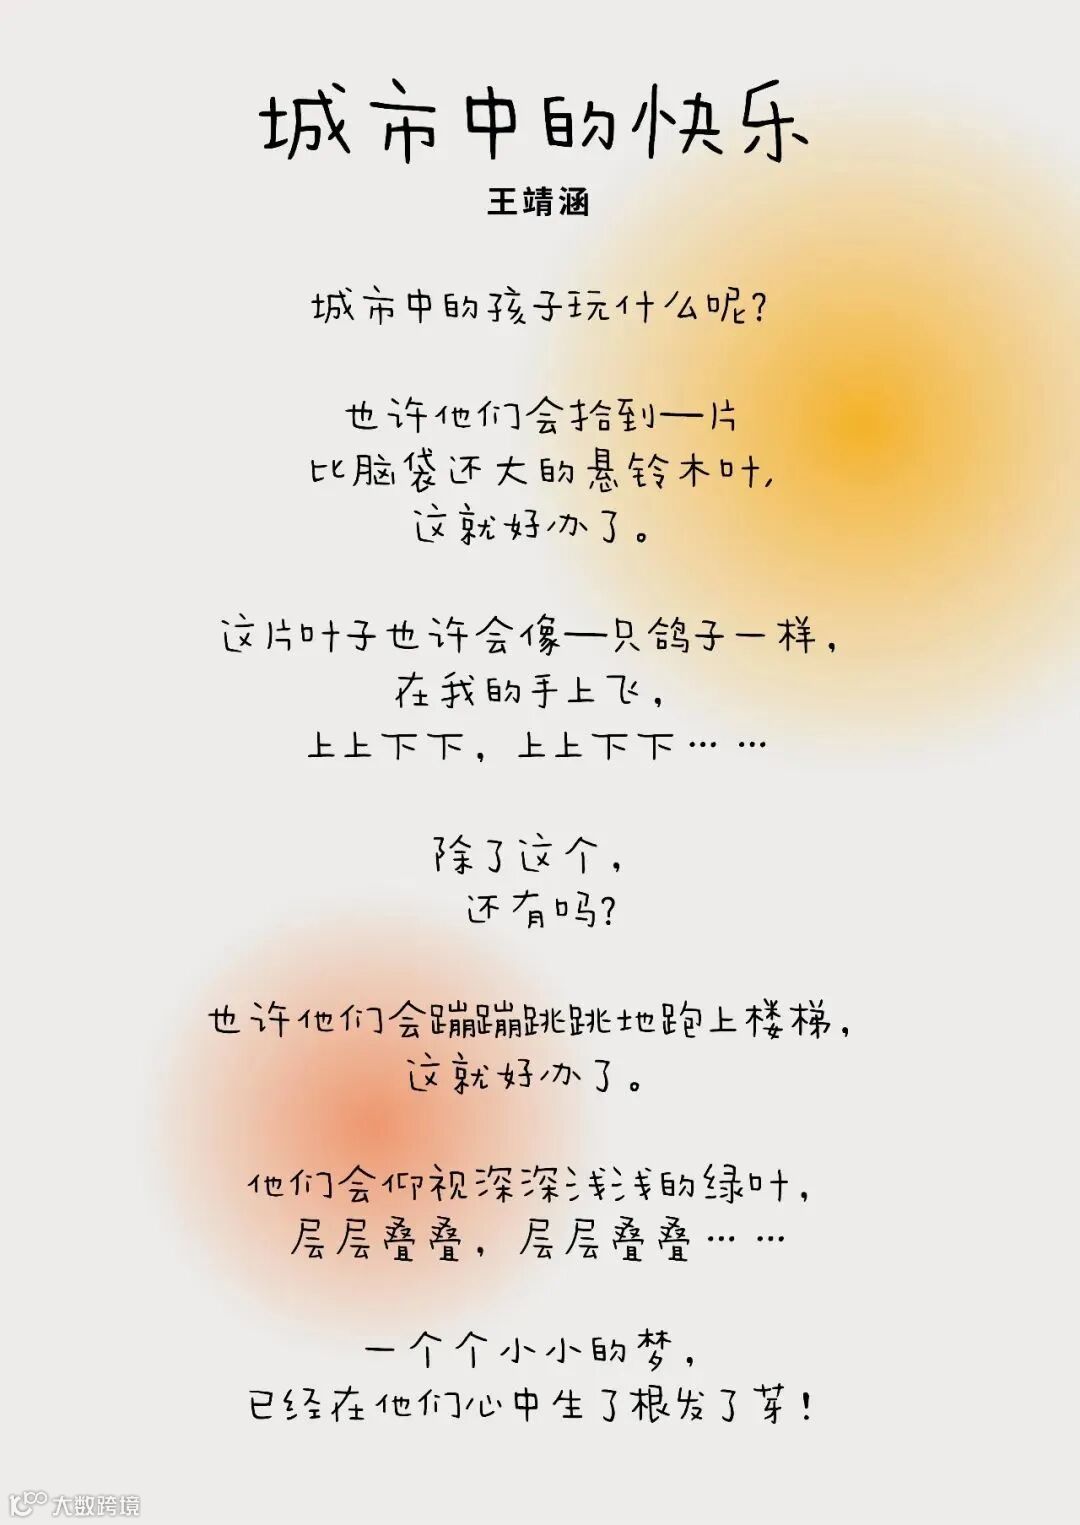 城市中的快乐
王靖涵
城市中的孩子玩什么呢?
也许他们会拾到一片
比脑袋还大的悬铃木叶,
这就好办了。
这片叶子也许会像一只鸽子一样,
在我的手上飞,
上上下下, 上上下下……
除了这个,
还有吗?
也许他们会蹦蹦跳跳地跑上楼梯,
这就好办了。
他们会仰视深深浅浅的绿叶,
层层叠叠, 层层叠叠……
一个个小小的梦,
已经在他们心中生了根发了芽!
大数跨境